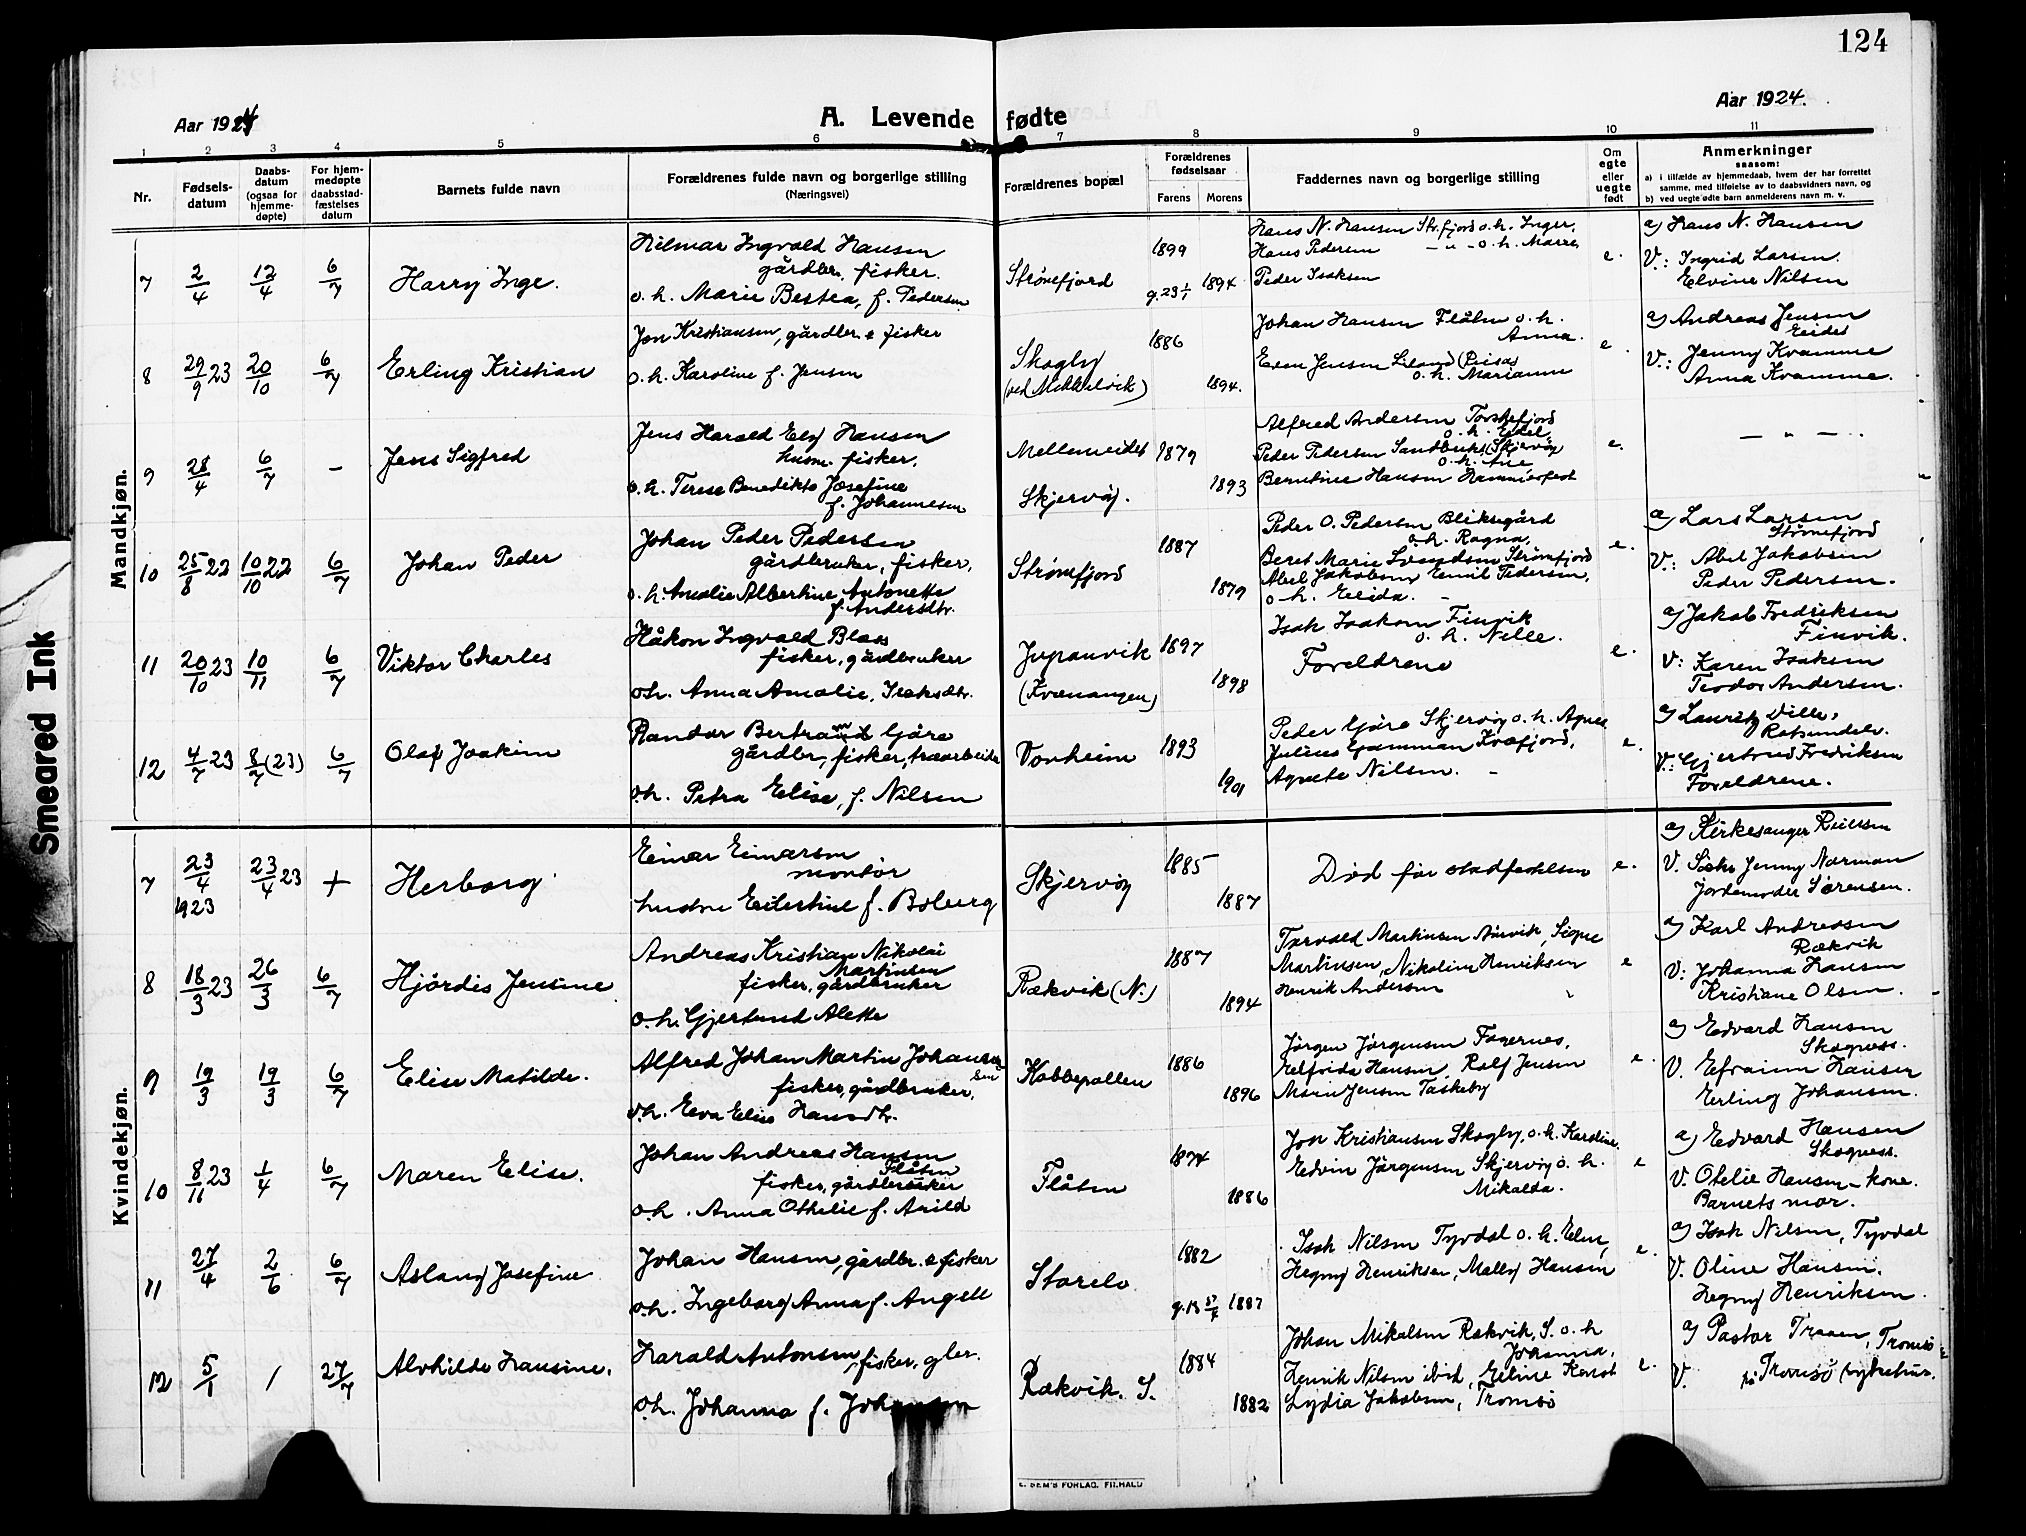 124
Aar 1924
A. Levende fødte
Aar 1924.
1 2 3 4 5 6 7 8 9 10 11
Nr.
Fødsels-
datum
Daabs-
datum
(ogsaa for
hjemme-
døpte)
For hjem-
medøpte
daabsstad-
fæstelses
datum
Barnets fulde navn
Forældrenes fulde navn og borgerlige stilling
(Næringsvei)
Forældrenes bopæl
Forældrenes
fødselsaar
Farens Morens
Faddernes navn og borgerlige stilling
Om
egte
eller
uegte
født
Anmerkninger
saasom:
a) i tilfælde av hjemmedaab, hvem der har forrettet
samme, med tilføielse av to daabsvidners navn, og
b) ved uegte fødte barn anmelderens navn m. v.
Mandkjøn.
7 2/4 12/4 6/7 Harry Inge.
Hilmar Ingvald Hansen
gårdbr. fisker.
o. h. Marie Bestea, f. Pedersen
Strømfjord
1899
g. 23 1/1 1894
Hans N. Hansen Str.fjord o. h. Inger,
Hans Pedersen — " — o. h. Marre
Peder Isaksen
e.
a) Hans N. Hansen
V.: Ingrid Larsen.
Elvine Nilsen
8 29/9 23 20/10 6/7 Erling Kristian
Jon Kristiansen, gårdbr. & fisker
o. h. Karoline f. Jensen
Skogly
(ved Mikkelvik)
1886
1894.
Johan Hansen Flåten o. h.
Anna.
Even Jensen
o. h. Mariann
e.
a) Andreas Jensen
Eidet
V.: Jenny Kvamme
Anna Kvamme.
9 28/4 6/7 — Jens Sigfred
Jens Harald Eloy Hansen
husm. fisker.
o. h. Terese Benedikte Josefine
f. Johannesen
Mellemeidet
Skjervøy.
1879
1893
Alfred Andersen Torskefjord
o. h. Edel.
Peder Pedersen Sandbukt, Skjervøy
o. h. Ane
Berntine Hansen Hammerfest
e.
— " —
10 25/8 22 10/10 22 6/7 Johan Peder
Johan Peder Pedersen
gårdbruker, fisker,
o. h. Amalie Albertine Antonette
f. Andersdtr.
Strømfjord
1887
1879
Peder O. Pedersen
o. h. Ragna,
Beret Marie Svendsen Strømfjord
Abel Jakobsen Emil Pedersen,
o. h. Elida.
e.
a) Lars Larsen
Strømfjord
V.: Abel Jakobsen
Peder Pedersen.
11 20/10 23 10/11 6/7 Viktor Charles
Håkon Ingvald Blaas
fisker, gårdbruker
o. h. Anna Amalie, Isaksdtr.
(Kvænangen)
1897
1898
Isak Isaksen Finvik
o. h. Nelle.
Foreldrene
e.
a) Jakob Fredriksen
Finvik.
V: Karen Isaksen
Teodor Andersen.
12 4/7 23 8/7 (23) 6/7 Olaf Joakim
Randor Bertrand Gjøre
gårdbr., fisker, træarbeider
o. h. Petra Elise, f. Nilsen
Vonheim
1893
1901
Peder Gjøre Skjervøy o. h. Agnes
Julius Gamman Kvæfjord,
Agnete Nilsen.
e.
a) Lauritz Dille,
Rotsundelv.
V.: Gjertrud Fredriksen
Foreldrene.
Kvindekjøn.
7 23/4 1923 23/4 23 + Herborg
Einar Einarsen
montør
hustru Edvardine f. Boberg
Skjervøy
1885
1887
Død før stadfestelsen
e.
a) Kirkesanger Reiersen
V. Søster Jenny Norman
Jordemoder Sørensen.
8 18/3 23 26/3 6/7 Hjørdis Jensine
Andreas Kristian Nikolai
Martinsen
fisker, gårdbruker
o. h. Gjertrud Alette
Rækvik (N.)
1887
1894
Torvald Martinsen Aarvik, Signe
Martinsen, Nikoline Henriksen
Henrik Andersen
e
a) Karl Andreassen
Rækvik
V: Johanna Hansen
Kristiane Olsen.
9 19/3 19/3 6/7 Elise Matilde.
Alfred Johan Martin Johansen
fisker, gårdbruker,
o. h. Eva Elise Hansdtr.
Kobbepollen
1886
1896
Jørgen Jørgensen Fagernes,
Elfrida Hansen, Rolf Jensen
Marie Jensen Taskeby
e.
a) Edvard Hansen
Skogness.
V. Efraim Hansen
Erling Johansen.
10 8/11 23 1/4 6/7 Maren Elise.
Johan Andreas Hansen
Flåten
fisker, gårdbruker
o. h. Anna Othelie f. Arild
Flåten
1874
1886
Jon Kristiansen Skogly, o. h. Karoline.
Edvin Jørgensen Skjervøy o. h.
Mikalda.
e
a) Edvard Hansen
Skogness.
V. Otelie Hansen - kone.
Barnets mor.
11 27/4 2/6 6/7 Aslaug Josefine
Johan Hansen, gårdbr. & fisker
o. h. Ingeborg Anna f. Angell
Storelv
1882
1887
Isak Nilsen Tyvdal o. h. Elen,
Hegny Henriksen, Mally Hansen
e.
a) Isak Nilsen, Tyvdal
V. Oline Hansen,
Hegny Henriksen.
12 5/1 / 27/7 Alvhilde Hansine.
Harald Antonsen, fisker, gbr.
o. h. Johanna f. Johansen
Rækvik. S.
1884
1882
Johan Mikalsen Rækvik, S. o. h
Johanna,
Henrik Nilsen ibid, Eline
Lydia Jakobsen, Tromsø
e.
a) Pastor Traaen, Tromsø
V. på Tromsø sykehus.
E. SEM'S FORLAG. FR.HALD
Smeared Ink